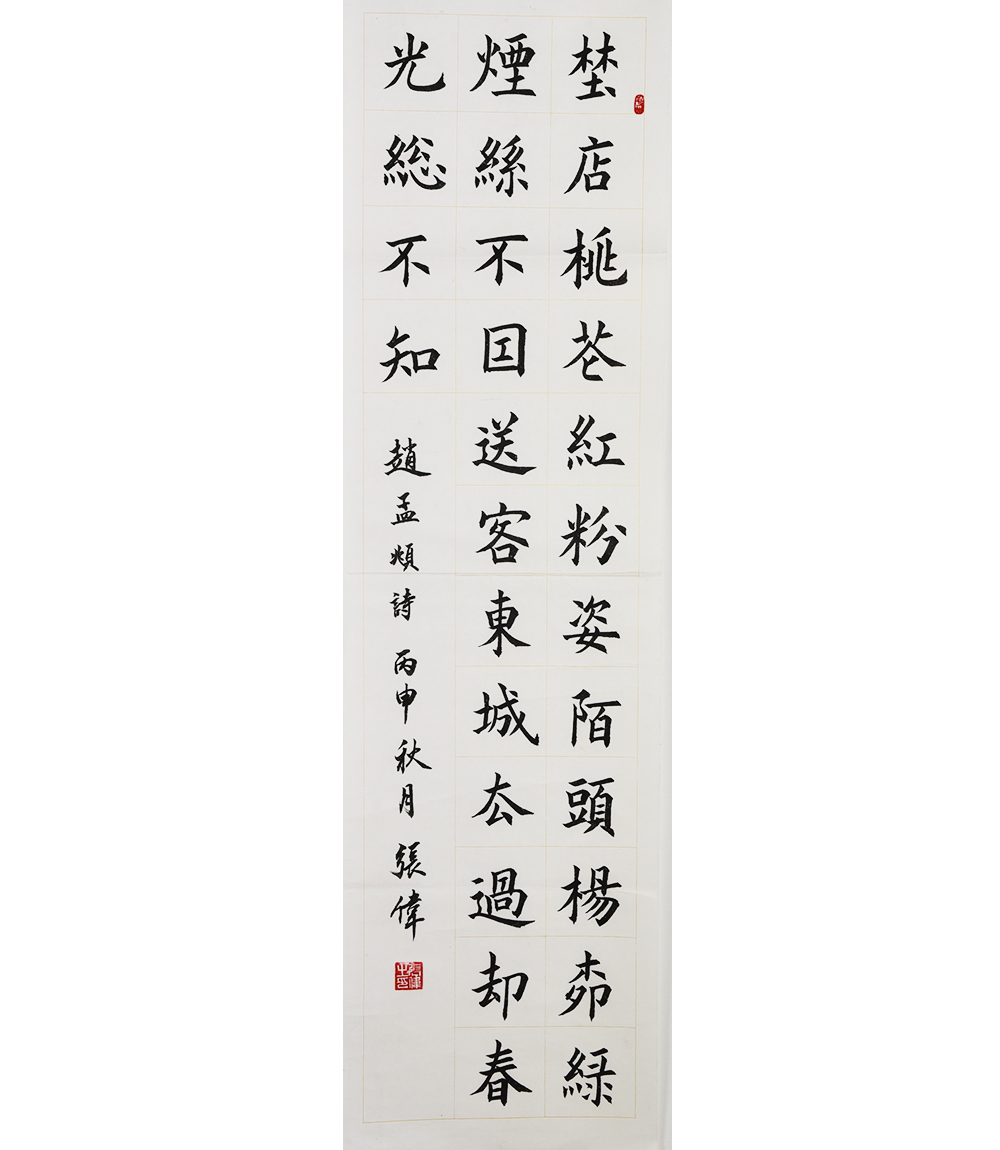 埜店桃芲紅粉姿陌頭楊桺綠
煙絲不囙送客東城厺過却春
光総不知
趙孟頫詩 丙申秋月 張偉